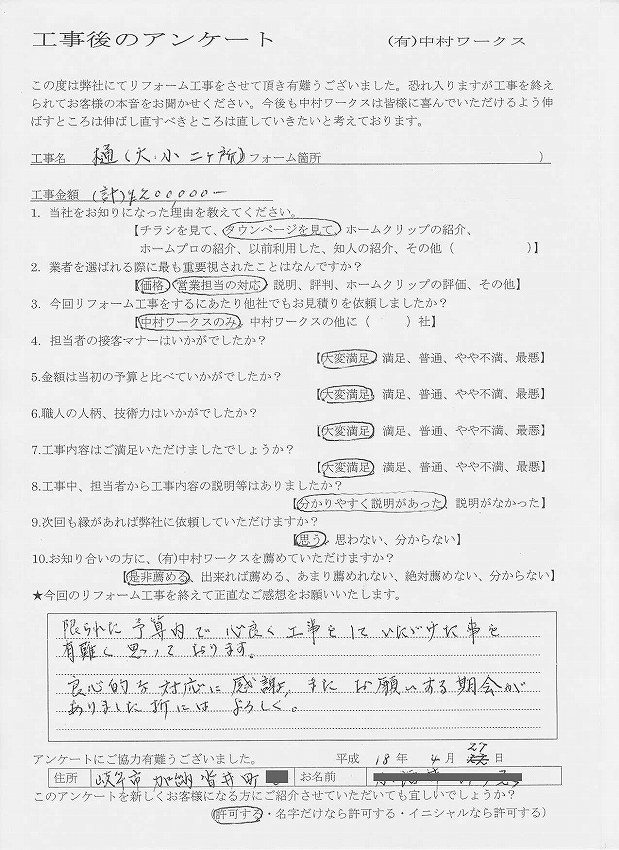 工事後のアンケート (有)中村ワークス
この度は弊社にてリフォーム工事をさせて頂き有難うございました。恐れ入りますが工事を終え
られてお客様の本音をお聞かせください。今後も中村ワークスは皆様に喜んでいただけるよう伸
ばすところは伸ばし直すべきところは直していきたいと考えております。
工事名 樋(大・小 二ヶ所)フォーム箇所 )
工事金額 (計)¥200,000-
1. 当社をお知りになった理由を教えてください。
【チラシを見て、タウンページを見て、ホームクリップの紹介、
ホームプロの紹介、以前利用した、知人の紹介、その他( )】
2. 業者を選ばれる際に最も重要視されたことはなんですか?
【価格、営業担当の対応、説明、評判、ホームクリップの評価、その他】
3. 今回リフォーム工事をするにあたり他社でもお見積りを依頼しましたか?
【中村ワークスのみ、中村ワークスの他に( )社】
4. 担当者の接客マナーはいかがでしたか?
【大変満足、満足、普通、やや不満、最悪】
5.金額は当初の予算と比べていかがでしたか?
【大変満足、満足、普通、やや不満、最悪】
6.職人の人柄、技術力はいかがでしたか?
【大変満足、満足、普通、やや不満、最悪】
7.工事内容はご満足いただけましたでしょうか?
【大変満足、満足、普通、やや不満、最悪】
8.工事中、担当者から工事内容の説明等はありましたか?
【分かりやすく説明があった、説明がなかった】
9.次回も縁があれば弊社に依頼していただけますか?
【思う、思わない、分からない】
10.お知り合いの方に、(有)中村ワークスを薦めていただけますか?
【是非薦める、出来れば薦める、あまり薦めれない、絶対薦めない、分からない】
★今回のリフォーム工事を終えて正直なご感想をお願いいたします。
限られた予算内で心良く工事をしていただけた事を
有難く思っております。
良心的な対応に感謝、またお願いする期会が
ありました折には よろしく。
アンケートにご協力有難うございました。 平成 18 年 4 月 27 日
住所 岐阜市加納菅井町 お名前
このアンケートを新しくお客様になる方にご紹介させていただいても宜しいでしょうか?
(許可する・名字だけなら許可する・イニシャルなら許可する)